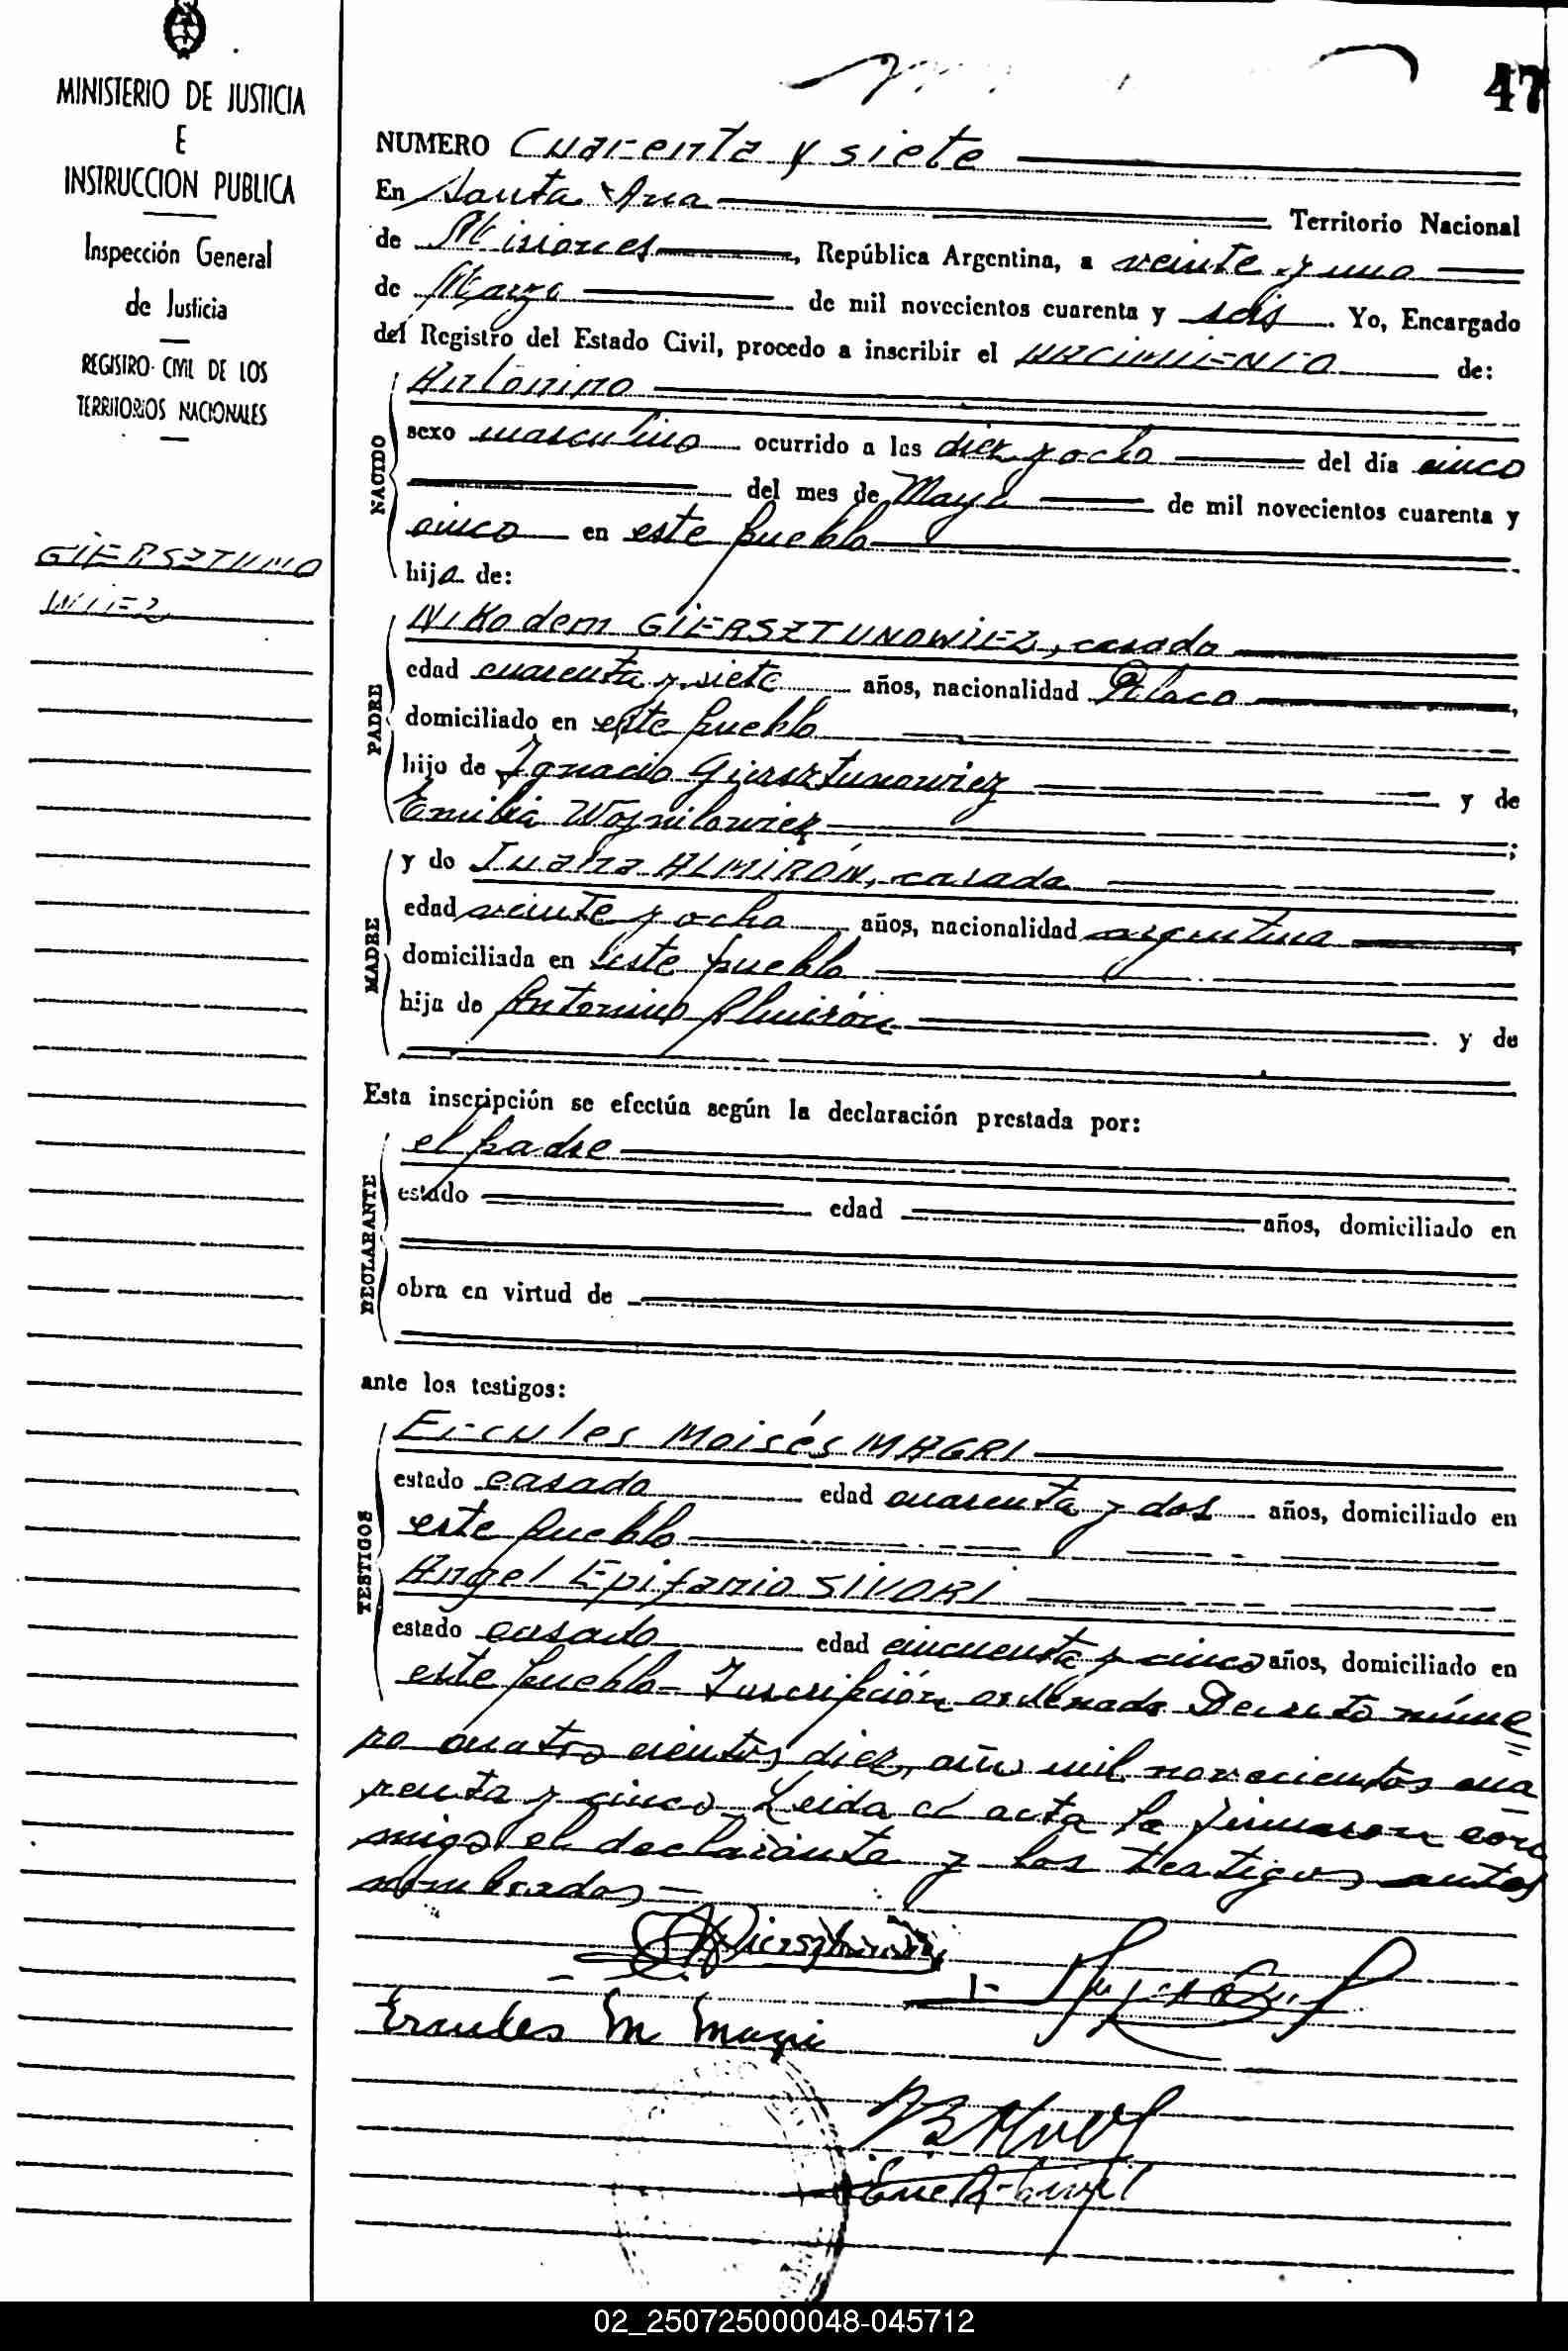 MINISTERIO DE JUSTICIA
E
INSTRUCCION PUBLICA
Inspección General
de Justicia
REGISTRO CIVIL DE LOS
TERRITORIOS NACIONALES
GIERSZTUNO
WIEZ
47
NUMERO Cuarenta y siete
En Santa Ana Territorio Nacional
de Misiones, República Argentina, a veinte y uno
de Marzo de mil novecientos cuarenta y seis. Yo, Encargado
del Registro del Estado Civil, procedo a inscribir el NACIMIENTO de:
NACIDO
Antonino
sexo masculino ocurrido a las diez y ocho del día cinco
del mes de Mayo de mil novecientos cuarenta y
cinco en este pueblo
hijo de:
PADRE
Nikodem GIERSZTUNOWIEZ, casado
edad cuarenta y siete años, nacionalidad Polaco,
domiciliado en este pueblo
hijo de Ignacio Giersztunowiez y de
Emilia Wojnilowiez;
MADRE
y de Juana ALMIRÓN, casada
edad veinte y ocho años, nacionalidad argentina,
domiciliada en este pueblo
hija de Antonino Almirón y de
Esta inscripción se efectúa según la declaración prestada por:
DECLARANTE
el padre
estado edad años, domiciliado en
obra en virtud de
ante los testigos:
TESTIGOS
Ercules Moisés MAGRI
estado casado edad cuarenta y dos años, domiciliado en
este pueblo
Angel Epifanio SIVORI
estado casado edad cincuenta y cinco años, domiciliado en
este pueblo - Inscripción ordenada Decreto núme
ro cuatro cientos diez, año mil novecientos cua
renta y cinco. Leida el acta la firmaron con
migo el declarante y los testigos antes
nombrados -
Ercules M Magri
Enc R. Civil
02_250725000048-045712